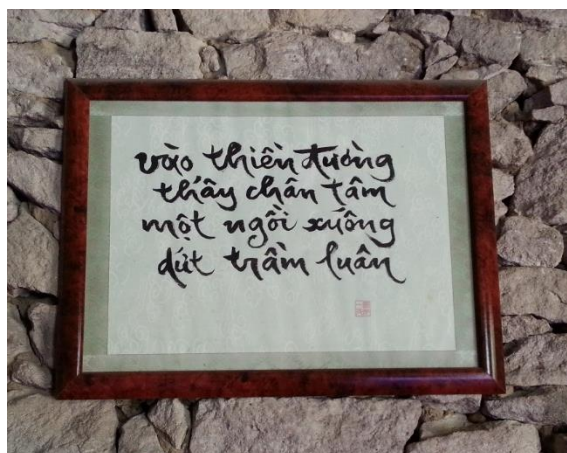 vào thiền đường
thấy chân tâm
một ngồi xuống
dứt trầm luân